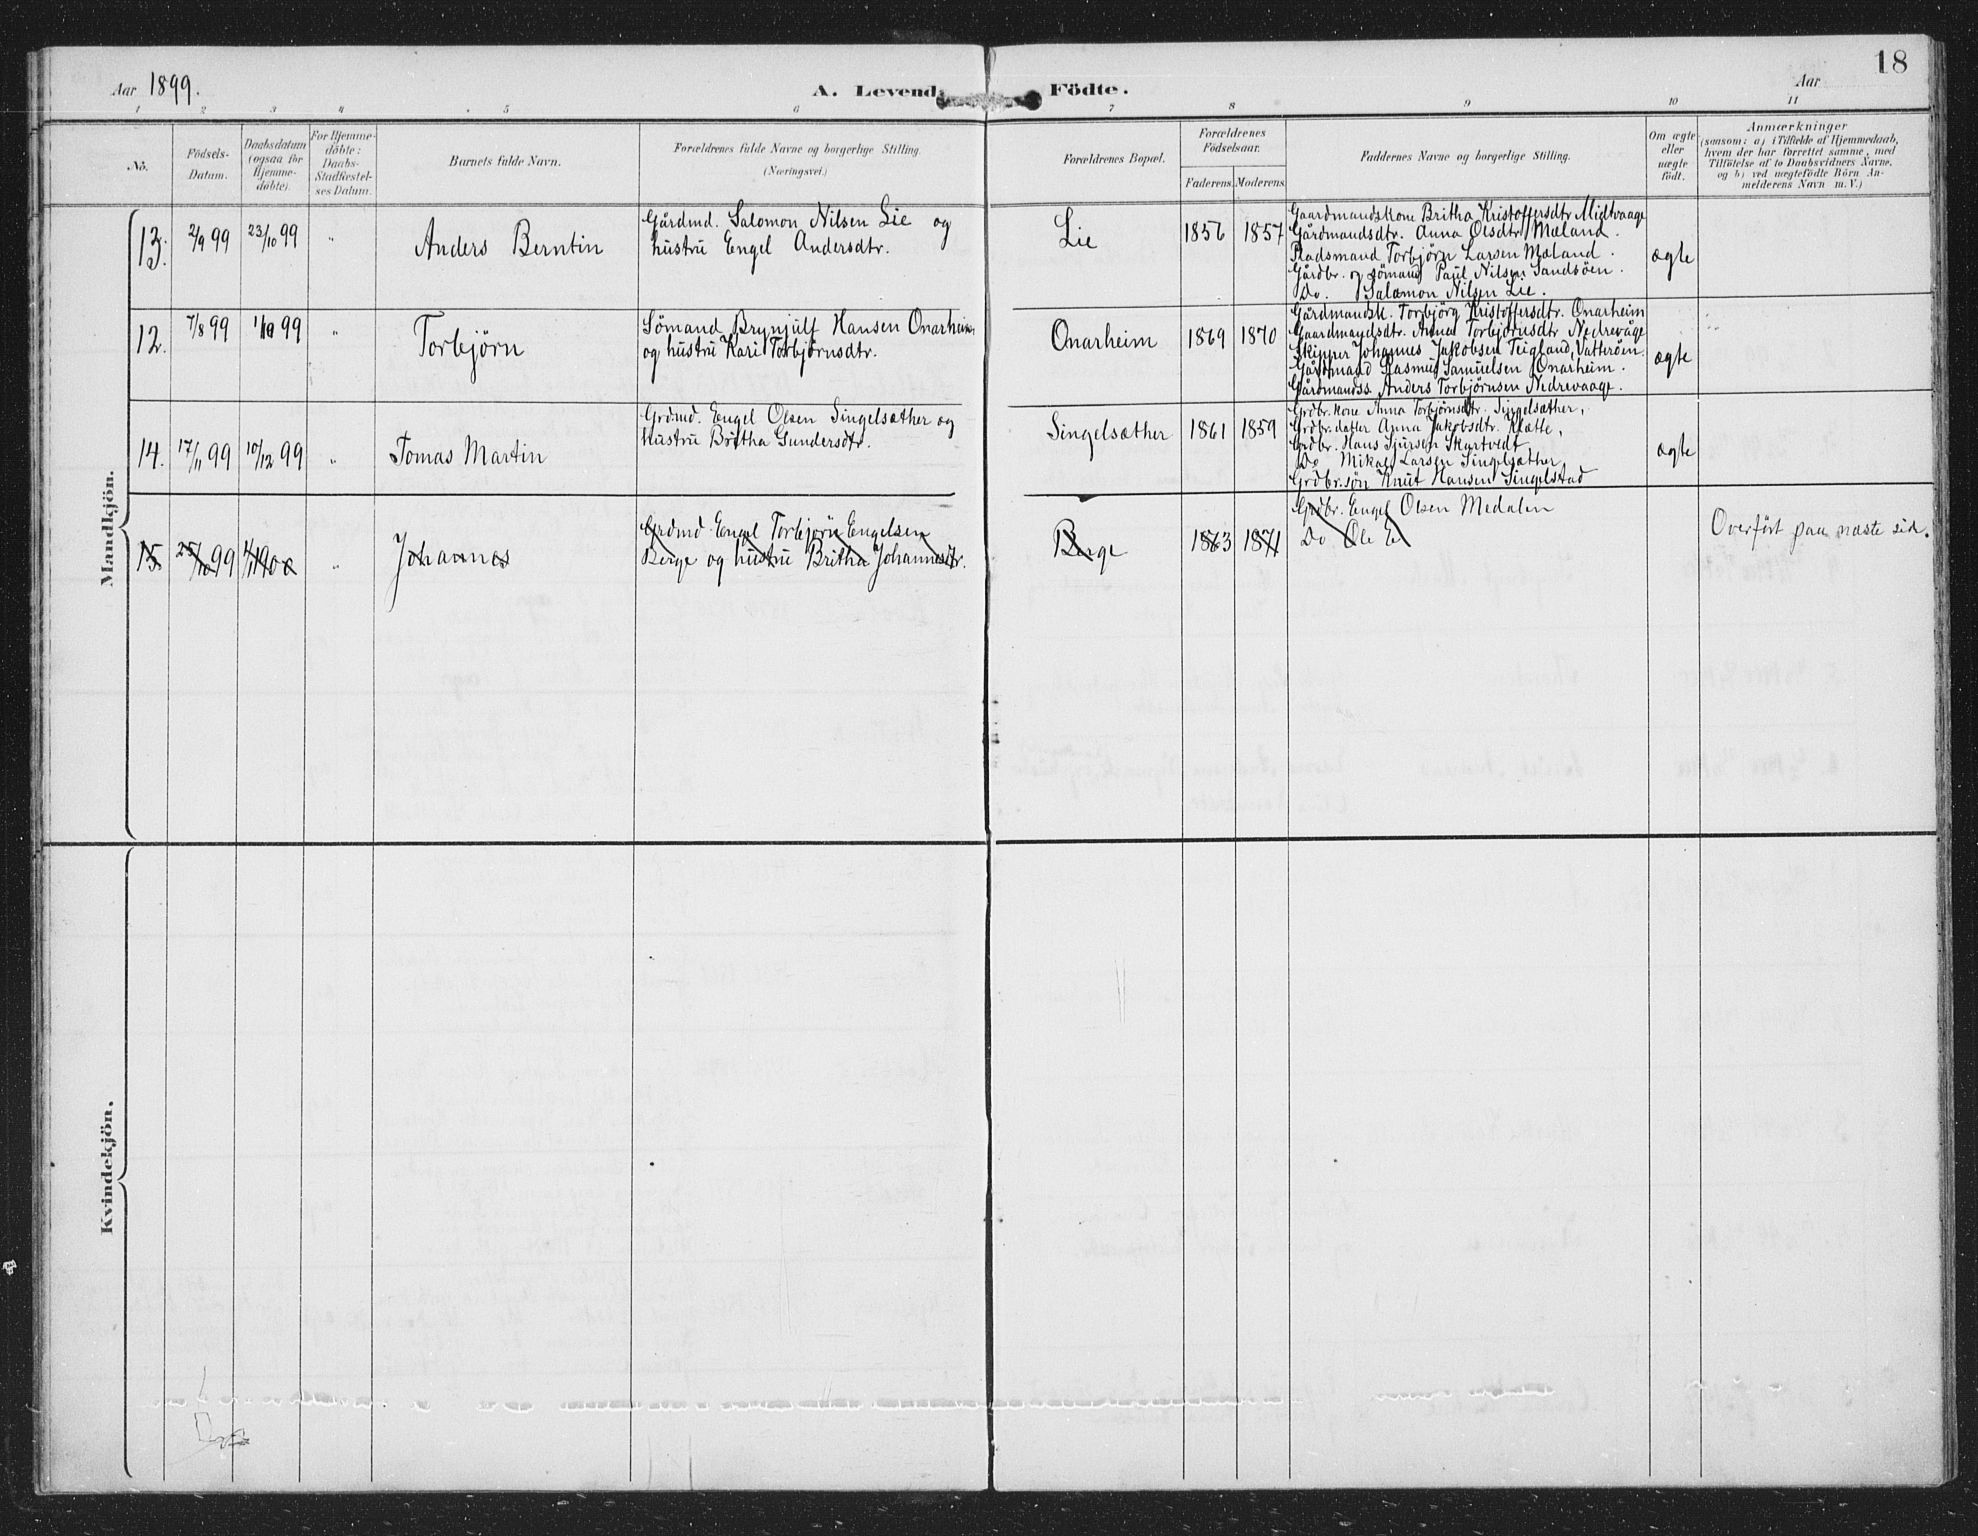 18
Aar 1899.
A. Levende Födte.
Aar
1 2 3 4 5 6 7 8 9 10 11
No.
Födsels-Datum.
Daabsdatum (ogsaa for Hjemme-döbte).
For Hjemme-döbte: Daabs-Stadfæstel-ses Datum.
Barnets fulde Navn.
Forældrenes fulde Navne og borgerlige Stilling.
(Næringsvei.)
Forældrenes Bopæl.
Forældrenes Födselsaar.
Faderens. Moderens.
Faddernes Navne og borgerlige Stilling.
Om ægte eller uægte födt.
Anmærkninger
(saasom: a) i Tilfælde af Hjemmedaab,
hvem der har forrettet samme, med
Tilföielse af to Daabsvidners Navne,
og b) ved uægtefödte Börn An-
melderens Navn m. V.)
Mandkjön.
13. 2/9 99 23/10 99 " Anders Berntin
Gårdmd. Salomon Nilsen Lie og
hustru Engel Andersdtr.
Lie 1856 1857
Gaardmandskone Britha Kristoffersdtr Midtvaage
Gårdmandsdtr. Anna Olsdtr Mæland.
Pladsmand Torbjörn Larsen Mæland.
Gårdbr. og sömand Paul Nilsen Sandsöen.
Do. Salomon Nilsen Lie.
ægte
12. 7/8 99 1/10 99 " Torbjörn
Sömand Brynjulf Hansen Onarheim
og hustru Kari Torbjörnsdtr.
Onarheim 1869 1870
Gårdmandsk. Torbjörg Kristoffersdtr. Onarheim
Gaardmandsdtr. Anna Torbjörnsdtr Nedrevåge
Skipper Johannes Jakobsen Teigland, Vatteröen.
Gårdmand Rasmus Samuelsen Onarheim.
Gårdmandss. Anders Torbjörnsen Nedrevaage.
ægte
14. 17/11 99 10/12 99 " Tomas Martin
Grdmd. Engel Olsen Singelsæther og
hustru Britha Gundersdtr.
Singelsæther 1861 1859
Grdbr.kone Anna Torbjörnsdtr. Singelsæther,
Grdbr.datter Anna Jakobsdtr. Klætte,
Grdbr. Hans Sjursen Skartvedt
Do Mikael Larsen Singelsæther
Grdbr.sön Knut Hansen Singelstad
ægte
15. 25/10 99 1/1 1900 " Johannes
Grdmd. Engel Torbjörn Engelsen
Berge og hustru Britha Johannesdtr.
Berge 1863 1871
Grdbr. Engel Olsen Medalen
Do Ole E
Overfört paa næste sid.
Kvindekjön.